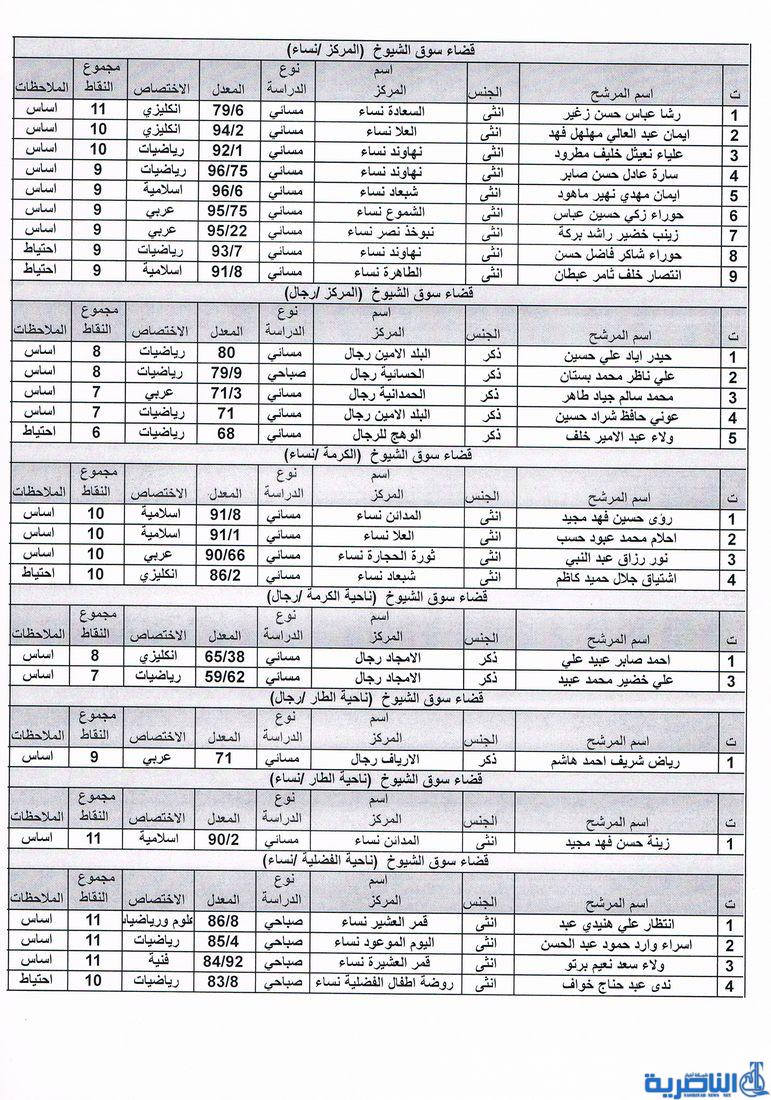 قضاء سوق الشيوخ (المركز /نساء)
ت اسم المرشح الجنس اسم المركز نوع الدراسة المعدل الاختصاص مجموع النقاط الملاحظات
1 رشا عباس حسن زغير انثى السعادة نساء مسائي 79/6 انكليزي 11 اساس
2 ايمان عبد العالي مهلهل فهد انثى العلا نساء مسائي 94/2 انكليزي 10 اساس
3 علياء نعيثل خليف مطرود انثى نهاوند نساء مسائي 92/1 رياضيات 10 اساس
4 سارة عادل حسن صابر انثى نهاوند نساء مسائي 96/75 رياضيات 9 اساس
5 ايمان مهدي نهير ماهود انثى شبعاد نساء مسائي 96/6 اسلامية 9 اساس
6 حوراء زكي حسين عباس انثى الشموع نساء مسائي 95/75 عربي 9 اساس
7 زينب خضير راشد بركة انثى نبوخذ نصر نساء مسائي 95/22 عربي 9 اساس
8 حوراء شاكر فاضل حسن انثى نهاوند نساء مسائي 93/7 رياضيات 9 احتياط
9 انتصار خلف ثامر عبطان انثى الطاهرة نساء مسائي 91/8 اسلامية 9 احتياط
قضاء سوق الشيوخ (المركز /رجال)
ت اسم المرشح الجنس اسم المركز نوع الدراسة المعدل الاختصاص مجموع النقاط الملاحظات
1 حيدر اياد علي حسين ذكر البلد الامين رجال مسائي 80 رياضيات 8 اساس
2 علي ناظر محمد بستان ذكر الحسانية رجال صباحي 79/9 رياضيات 8 اساس
3 محمد سالم جياد طاهر ذكر الحمدانية رجال مسائي 71/3 عربي 7 اساس
4 عوني حافظ شراد حسين ذكر البلد الامين رجال مسائي 71 رياضيات 7 اساس
5 ولاء عبد الامير خلف ذكر الوهج للرجال مسائي 68 رياضيات 6 احتياط
قضاء سوق الشيوخ (الكرمة /نساء)
ت اسم المرشح الجنس اسم المركز نوع الدراسة المعدل الاختصاص مجموع النقاط الملاحظات
1 رؤى حسين فهد مجيد انثى المدائن نساء مسائي 91/8 اسلامية 10 اساس
2 احلام محمد عبود حسب انثى العلا نساء مسائي 91/1 اسلامية 10 اساس
3 نور رزاق عبد النبي انثى ثورة الحجارة نساء مسائي 90/66 عربي 10 اساس
4 اشتياق جلال حميد كاظم انثى شبعاد نساء مسائي 86/2 انكليزي 10 احتياط
قضاء سوق الشيوخ (ناحية الكرمة /رجال)
ت اسم المرشح الجنس اسم المركز نوع الدراسة المعدل الاختصاص مجموع النقاط الملاحظات
1 احمد صابر عبيد علي ذكر الامجاد رجال مسائي 65/38 انكليزي 8 اساس
3 علي خضير محمد عبيد ذكر الامجاد رجال مسائي 59/62 رياضيات 7 اساس
قضاء سوق الشيوخ (ناحية الطار /رجال)
ت اسم المرشح الجنس اسم المركز نوع الدراسة المعدل الاختصاص مجموع النقاط الملاحظات
1 رياض شريف احمد هاشم ذكر الارياف رجال مسائي 71 عربي 9 اساس
قضاء سوق الشيوخ (ناحية الطار /نساء)
ت اسم المرشح الجنس اسم المركز نوع الدراسة المعدل الاختصاص مجموع النقاط الملاحظات
1 زينة حسن فهد مجيد انثى المدائن نساء مسائي 90/2 اسلامية 11 اساس
قضاء سوق الشيوخ (ناحية الفضلية /نساء)
ت اسم المرشح الجنس اسم المركز نوع الدراسة المعدل الاختصاص مجموع النقاط الملاحظات
1 انتظار علي هنيدي عبد انثى قمر العشير نساء صباحي 86/8 علوم ورياضيات 11 اساس
2 اسراء وارد حمود عبد الحسن انثى اليوم الموعود نساء صباحي 85/4 رياضيات 11 اساس
3 ولاء سعد نعيم برتو انثى قمر العشيرة نساء صباحي 84/92 فنية 11 اساس
4 ندى عبد حناج خواف انثى روضة اطفال الفضلية نساء صباحي 83/8 رياضيات 10 احتياط
شبكة اخبار
الناصرية
NASIRIYAH NEWS NET